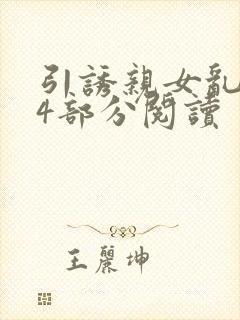 引誘親女亂
4部分閱讀
王麗坤